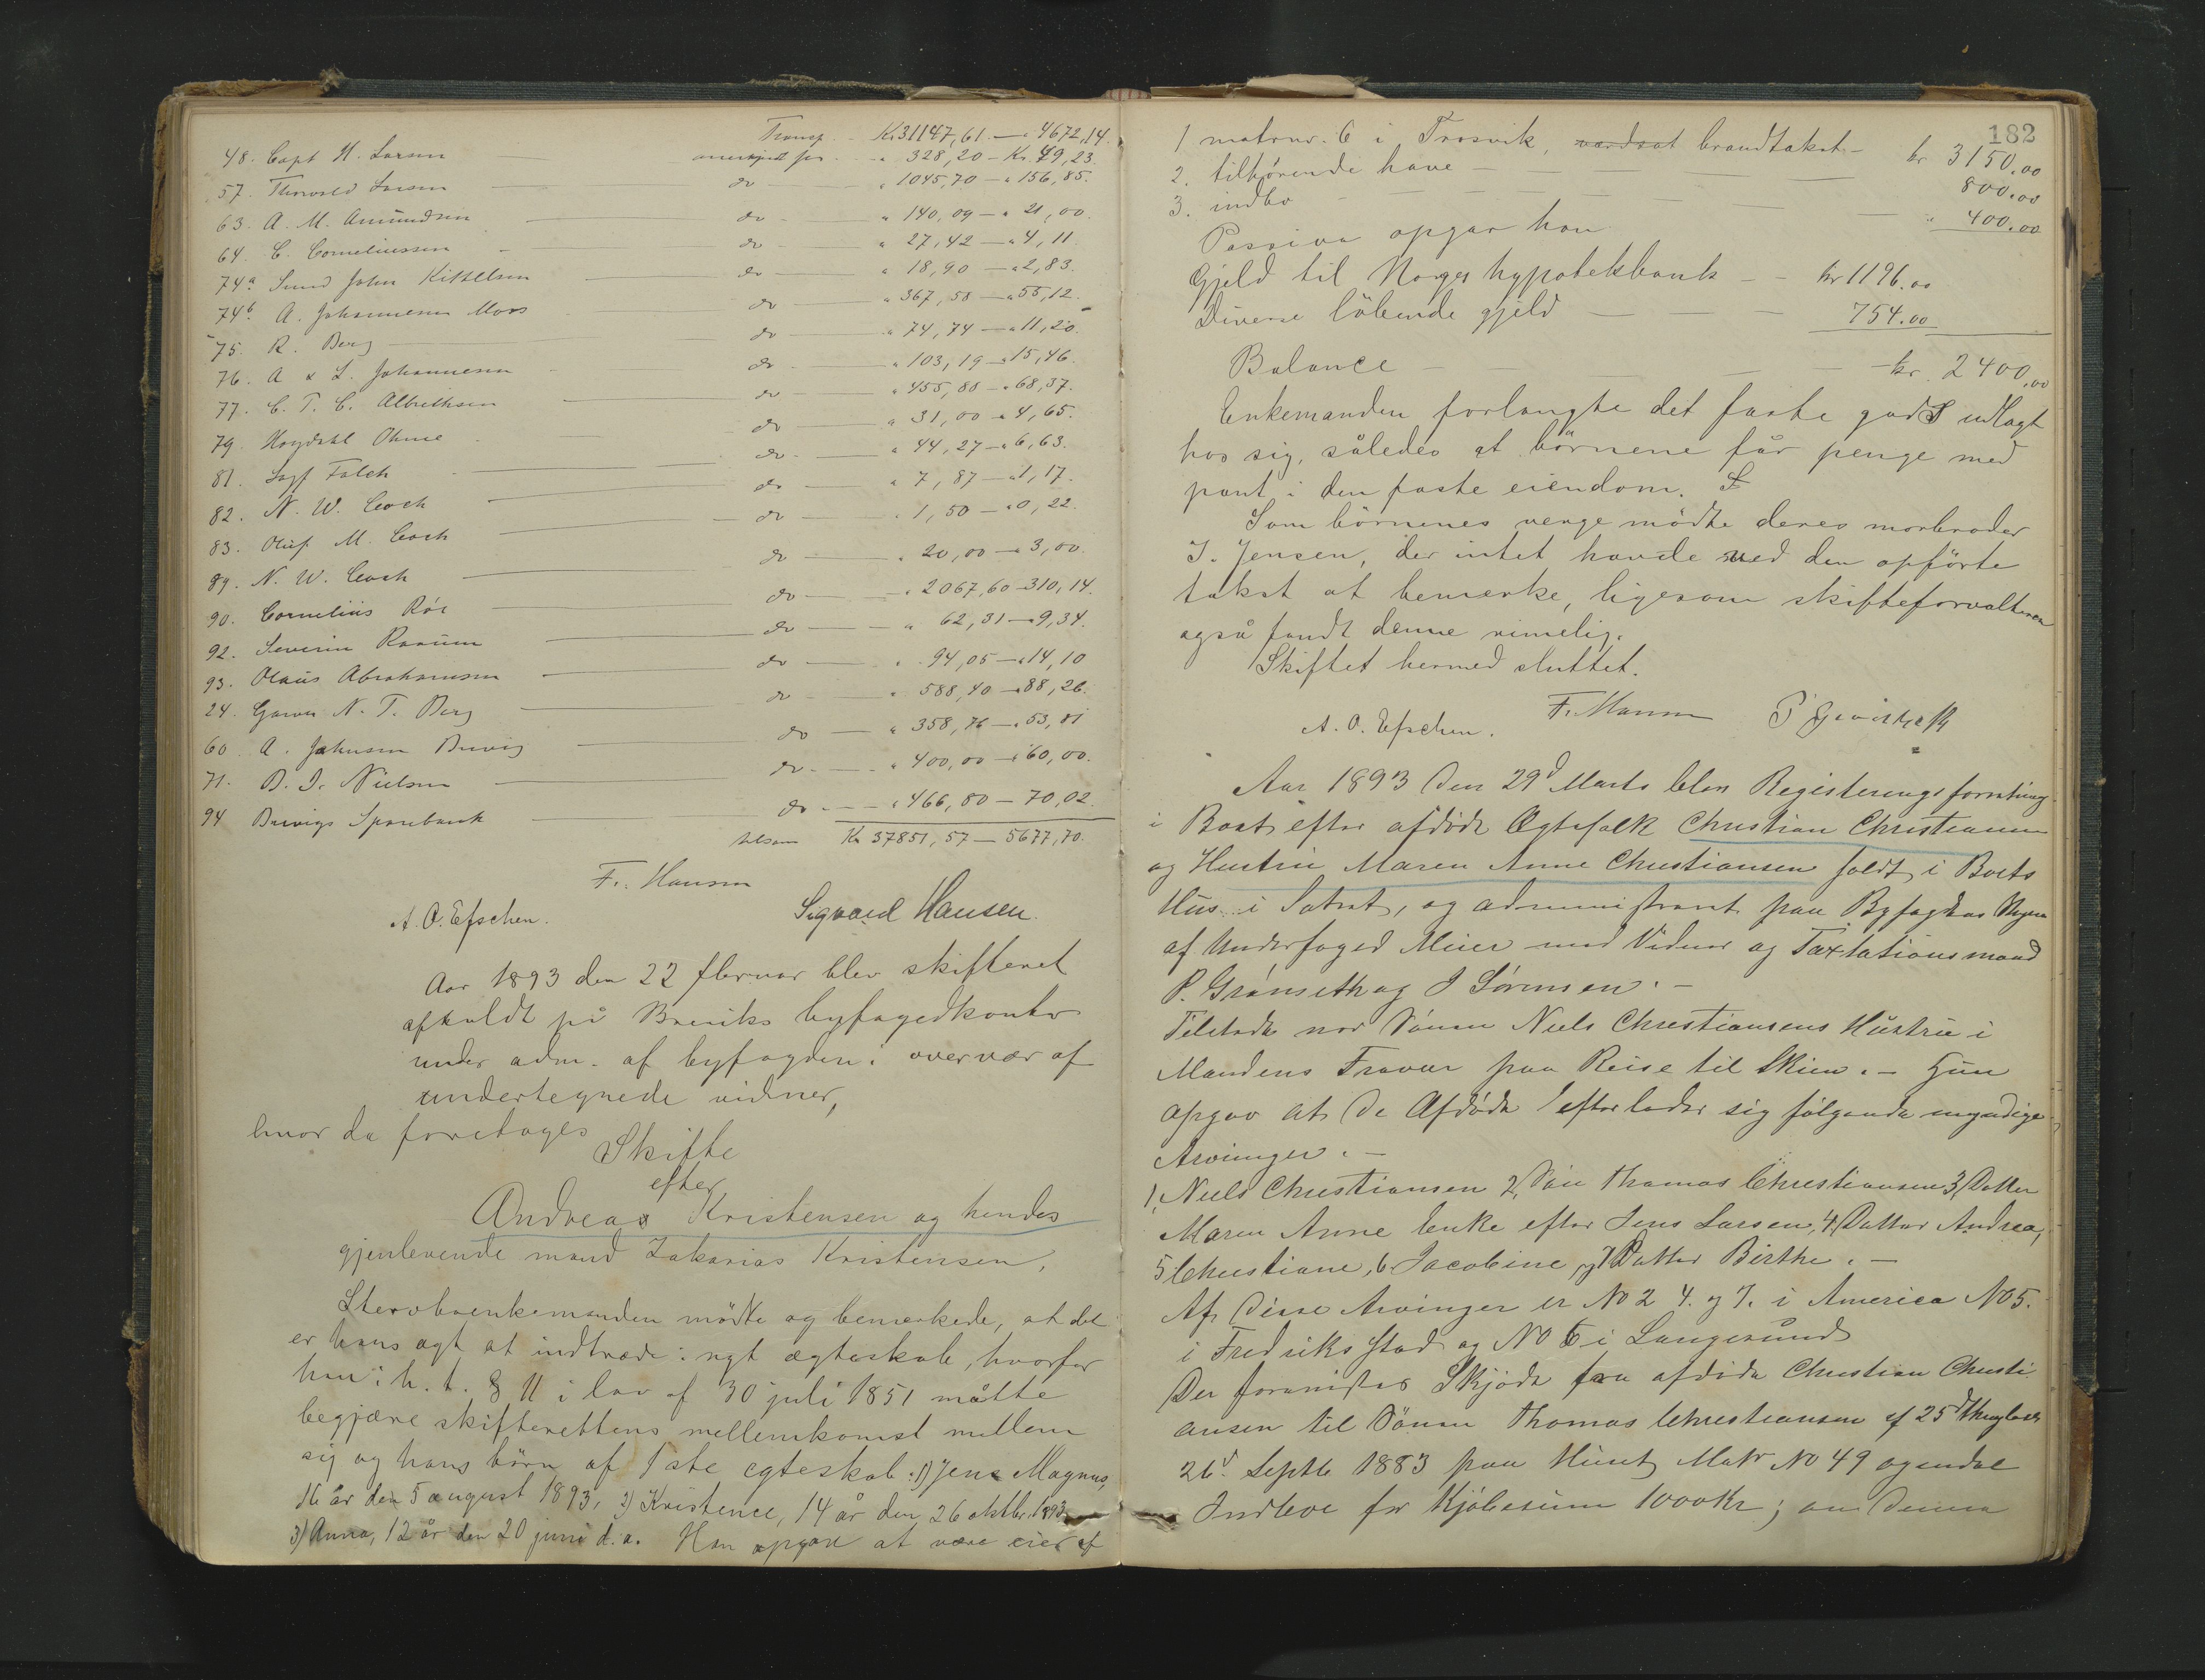 Transp. Kr 31147,61 — " 4672,14.
48. Capt H. Larsen anerkjent for " 328,20 — Kr. 49,23.
57. Thorvald Larsen do " 1045,70 — " 156,85.
63. A. M. Amundsen do " 140,09 — " 21,00.
64. C. Corneliussen do " 27,42 — " 4,11.
74a. Sund John Kittelsen do " 18,90 — " 2,83.
74b. A. Johannesen Moss do " 367,58 — " 55,12.
75. R. Berg do " 74,74 — " 11,20
76. A & L. Johannesen do " 103,19 — " 15,46.
77. C. T. C. Albrethsen do " 455,88 — " 68,37.
79. do " 31,00 — " 4,65.
81. Falch do " 44,27 — " 6,63.
82. N. W. Coch do " 7,87 — " 1,17.
83. Oluf M. Coch do " 1,50 — " 0,22.
89. N. W. Coch do " 20,00 — " 3,00.
90. Cornelius Rör do " 2067,60 — 310,14.
92. Severin Raaum do " 62,31 — " 9,34.
93. Olaus Abrahamsen do " 94,05 — " 14,10
24. Garver N. T. Berg do " 588,40 — " 88,26.
60 A. Johnsen Brevig do " 358,76 — " 53,81
71. D. J. Nielsen do " 400,00 — " 60,00.
94 Brevigs Sparebank do " 466,80 — 70,02.
tilsam Kr 37851,57 — 5677,70.
Fr. Hansen
A. O. Efschen. Sigvard Hansen.
Aar 1893 den 22 februar blev skifteret
afholdt på Breviks byfogedkontor
under adm. af byfogden i overvær af
undertegnede vidner,
hvor da foretoges
Skifte
efter
Andrea Kristensen og hendes
gjenlevende mand Zakarias Kristensen.
Stervboenkemanden mödte og bemærkede, at det
er hans agt at indtræde i nyt ægteskab, hvorfor
han i h. t. § 11 i lov af 30 juli 1851 måtte
begjære skifterettens mellemkomst mellem
sig og hans börn af 1ste egteskab: 1) Jens Magnus,
16 år den 5 august 1893, 2) Kristence, 14 år den 26 oktbr. 1893
3) Anna, 12 år den 20 juni d. a. Han opgav at være eier af
182
1 matrnr. 6 i Trosvik, værdsat brandtakst — kr 3150.00
2. tilhörende have — 800.00
3. indbo — " 400.00
Passiva opgav han
Gjeld til Norges hypotekbank — kr 1196.00
Diverse löbende gjeld — 754.00
Balance — kr. 2400,00
Enkemanden forlangte det faste gods udlagt
hos sig, således at börnene får penge med
pant i den faste eiendom.
Som börnenes verge mödte deres morbroder
J. Jensen, der intet havde ved den opförte
takst at bemærke, ligesom skifteforvalteren
også fandt denne rimelig.
Skiftet hermed sluttet.
A. O. Efschen. Fr. Hansen
Aar 1893 den 29d Marts blev Registeringsforretning
i Boet efter afdöde Ægtefolk Christian Christiansen
og Hustru Maren Anne Christiansen holdt i Boets
Hus i Satret, og administreret paa Byfogdens Vegne
af Underfoged Meier med Vidner og Taxtationsmænd
P. Grönseth og J Sörensen. —
Tilstede var Sönnen Niels Christiansens Hustrue i
Mandens Fravær paa Reise til Skien. — Hun
opgav at de Afdöde efterlader sig fölgende myndige
Arvinger. —
1, Niels Christiansen 2, Sön Thomas Christiansen 3, Datter
Maren Anne Enke efter Jens Larsen, 4, Datter Andrea,
5 Christiane, 6 Jacobine, og 7 Datter Birthe. —
Af disse Arvinger er No 2 4. og 7. i America No 5.
i Fredriksstad og No 6 i Langesund
Der foranistes Skjöde fra afdöde Christian Christi
ansen til Sönnen Thomas Christiansen af 25d
26d. Septb 1883 paa Huset Matr No 49 ogendel
Indbo for Kjöbesum 1000 Kr; om denne